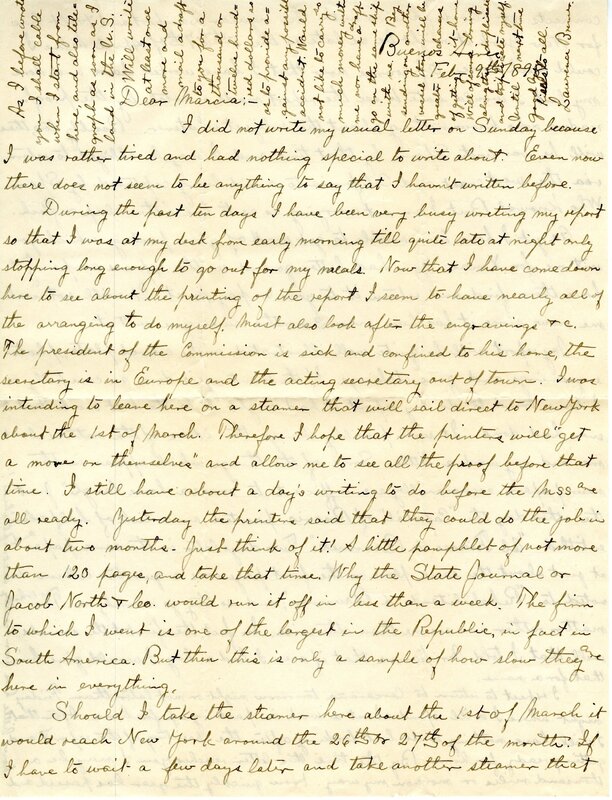 Buenos
Feb. 9th 189
Dear Marcia:-
I did not write my usual letter on Sunday because
I was rather tired and had nothing special to write about. Even now
there does not seem to be anything to say that I havn't written before.
During the past ten days I have been very busy writing my report
so that I was at my desk from early morning till quite late at night only
stopping long enough to go out for my meals. Now that I have come down
here to see about the printing of the report I seem to have nearly all of
the arranging to do myself. Must also look after the engravings &c.
The president of the Commission is sick and confined to his home, the
secretary is in Europe and the acting secretary out of town. I was
intending to leave here on a steamer that will sail direct to New York
about the 1st of March. Therefore I hope that the printers will "get
a move on themselves" and allow me to see all the proof before that
time. I still have about a day's writing to do before the Mss are
all ready. Yesterday the printers said that they could do the job in
about two months. Just think of it! A little pamphlet of not more
than 120 pages, and take that time. Why the State Journal or
Jacob North & Co. would run it off in less than a week. The firm
to which I went is one of the largest in the Republic, in fact in
South America. But then this is only a sample of how slow they are
here in everything.
Should I take the steamer here about the 1st of March it
would reach New York around the 26th or 27th of the month. If
I have to wait a few days later and take another steamer that
As I before wrote
you I shall cable
when I start from
here, and also tele-
graph as soon as I
land in the U.S.
Will write
at least once
more and
mail a draft
to you for a
thousand or
twelve hund-
red dollars so
as to provide a-
gainst any possible
accident. Would
not like to carry so
much money with
me nor have it
go on the same ship
with me. By
sending
Until next time
good bye
to all
Lawrence Bruner